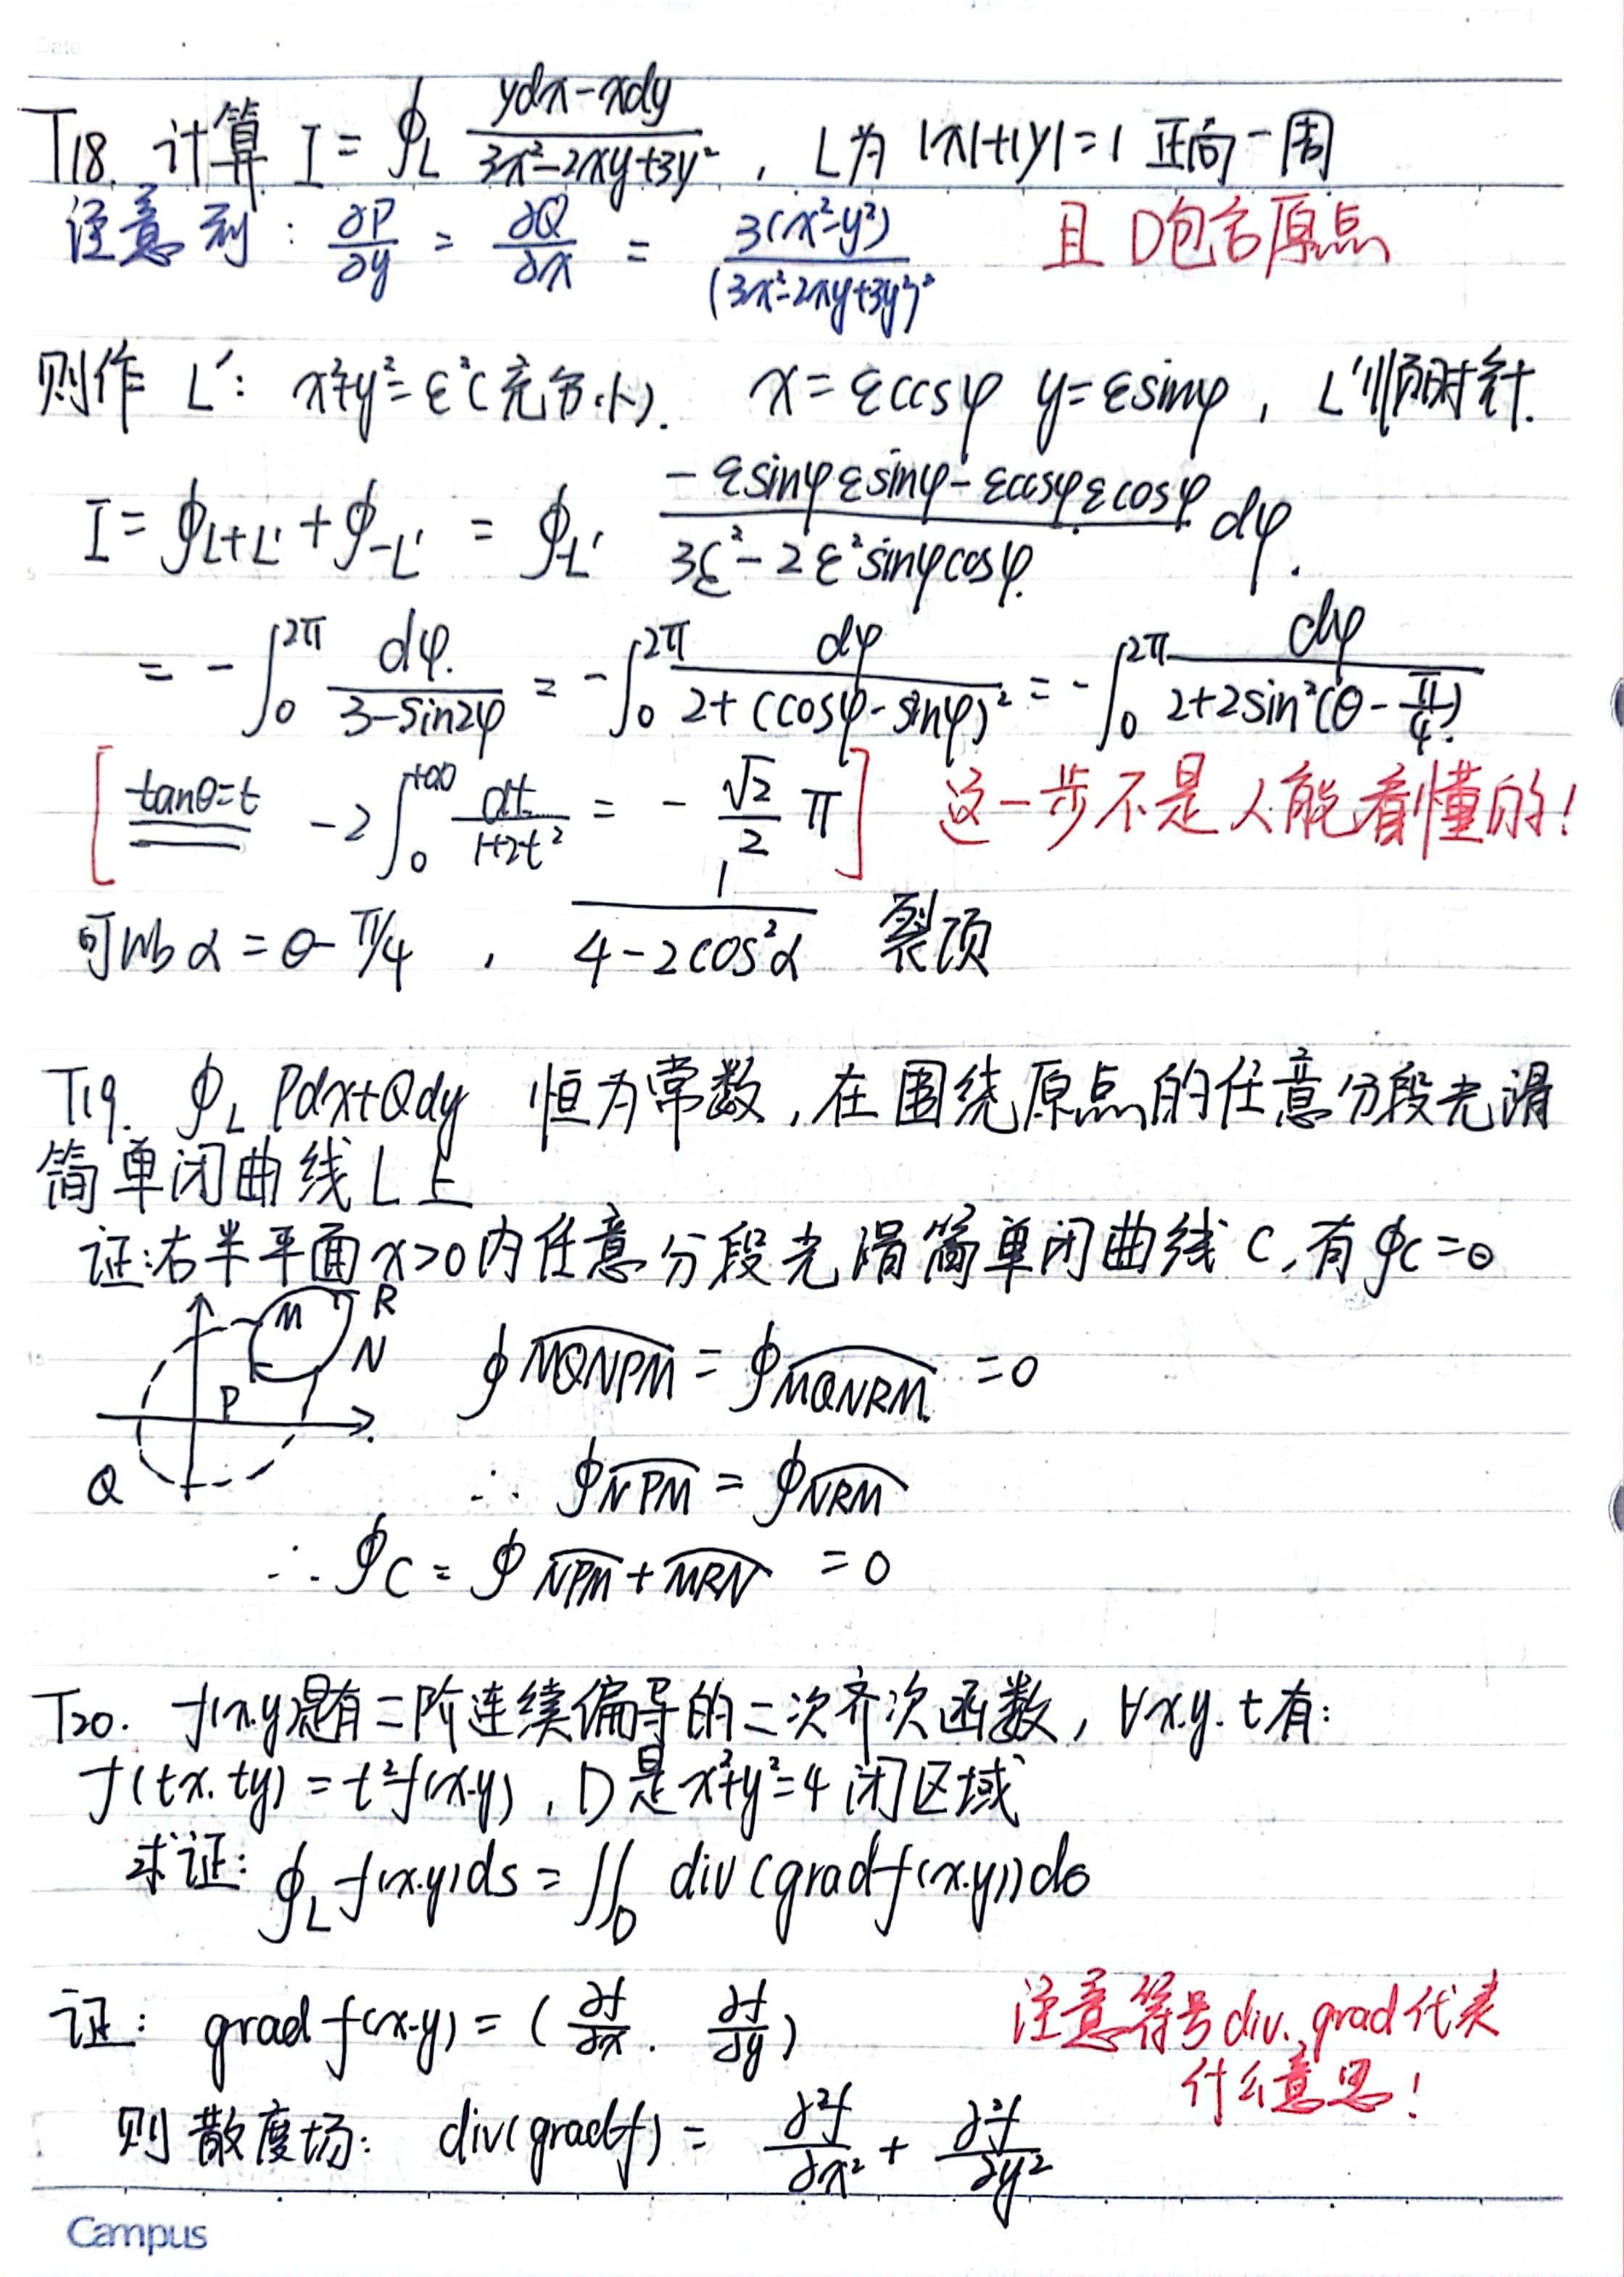 Date
T18. 计算 I = ∮_L (ydx-xdy)/(3x²-2xy+3y²) , L为 |x|+|y|=1 正向一周
注意到: ∂P/∂y = ∂Q/∂x = 3(x²-y²)/(3x²-2xy+3y²)² 且 D包含原点
则作 L': x²+y²=ε²(充分小). x=εcosφ y=εsinφ, L'顺时针.
I = ∮_{L+L'} + ∮_{-L'} = ∮_{-L'} (-εsinφεsinφ-εcosφεcosφ)/(3ε²-2ε²sinφcosφ) dφ.
= -∫_0^{2π} dφ/(3-sin2φ) = -∫_0^{2π} dφ/(2+(cosφ-sinφ)²) = -∫_0^{2π} dφ/(2+2sin²(θ-π/4))
[ tanθ=t -2∫_0^{+∞} dt/(1+2t²) = -(√2/2)π ] 这一步不是人能看懂的!
可以 α=θ-π/4 , 1/(4-2cos²α) 裂项
T19. ∮_L Pdx+Qdy 恒为常数,在围绕原点的任意分段光滑
简单闭曲线L上
证:右半平面x>0内任意分段光滑简单闭曲线C,有∮c=0
M R
N
P
Q
∮MQNPM = ∮MQNRM =0
∴ ∮NPM = ∮NRM
∴ ∮C = ∮NPM+MRN =0
T20. f(x.y)是有二阶连续偏导的二次齐次函数, ∀x.y.t有:
f(tx.ty)=t²f(x.y) , D是x²+y²=4闭区域
求证: ∮_L f(x.y)ds = ∬_D div(gradf(x.y))dσ
证: grad f(x.y) = (∂f/∂x . ∂f/∂y) 注意符号div. grad代表
什么意思!
则散度场: div(gradf) = ∂²f/∂x² + ∂²f/∂y²
Campus